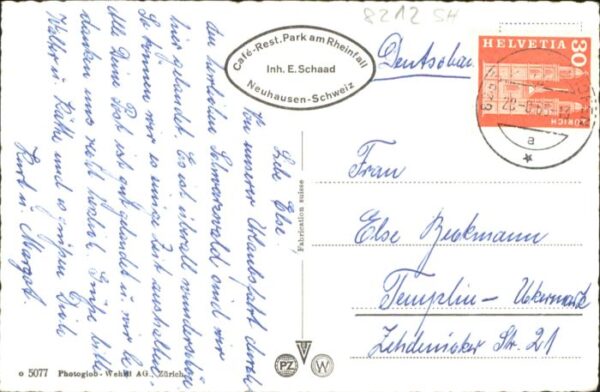 8212 SH
Café-Rest. Park am Rheinfall
Inh. E. Schaad
Neuhausen-Schweiz
Deutschland
HELVETIA 30
ZÜRICH
a
Liebe Else!
unserer Urlaubsfahrt durch
den herrlichen Schwarzwald sind wir
hier gelandet. Es ist überall wunderschön
So können wir es einige Zeit aushalten.
Alle Deine Post ist gut gelandet u. wir be-
danken uns recht herzlich. Grüße bitte
Walter u. Käthe und es grüßen Dich
Kurt u. Margot.
Fabrication suisse
Frau
Else Beckmann
Templin - Uckermark
Zehdenicker Str. 21
o 5077 Photoglob-Wehrli AG., Zürich
PZ
W